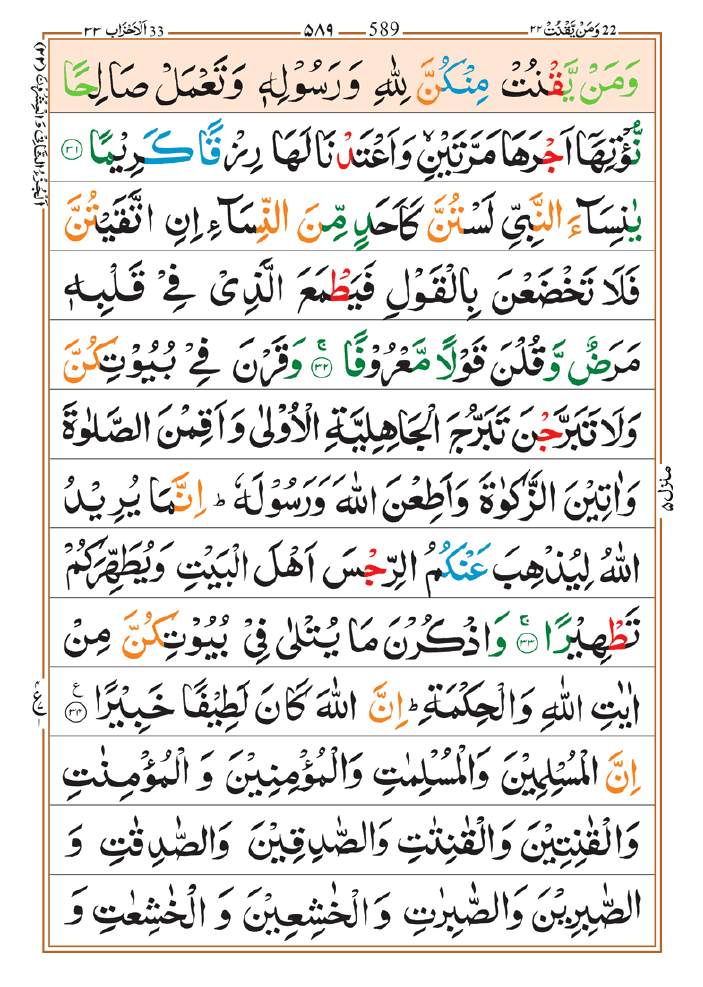 22 وَمَنْ يَّقْنُتْ ٢٢ — 589 — ٥٨٩ — 33 اَلْاَحْزَاب ٣٣
وَمَنْ يَّقْنُتْ مِنْكُنَّ لِلّٰهِ وَرَسُوْلِهٖ وَتَعْمَلْ صَالِحًا
نُّؤْتِهَاۤ اَجْرَهَا مَرَّتَيْنِ ۙ وَاَعْتَدْنَا لَهَا رِزْقًا كَرِيْمًا ﴿۳۱﴾
يٰنِسَآءَ النَّبِيِّ لَسْتُنَّ كَاَحَدٍ مِّنَ النِّسَآءِ اِنِ اتَّقَيْتُنَّ
فَلَا تَخْضَعْنَ بِالْقَوْلِ فَيَطْمَعَ الَّذِىْ فِىْ قَلْبِهٖ
مَرَضٌ وَّقُلْنَ قَوْلًا مَّعْرُوْفًا ﴿۳۲﴾ۚ وَقَرْنَ فِىْ بُيُوْتِكُنَّ
وَلَا تَبَرَّجْنَ تَبَرُّجَ الْجَاهِلِيَّةِ الْاُوْلٰى وَاَقِمْنَ الصَّلٰوةَ
وَاٰتِيْنَ الزَّكٰوةَ وَاَطِعْنَ اللّٰهَ وَرَسُوْلَهٗ ؕ اِنَّمَا يُرِيْدُ
اللّٰهُ لِيُذْهِبَ عَنْكُمُ الرِّجْسَ اَهْلَ الْبَيْتِ وَيُطَهِّرَكُمْ
تَطْهِيْرًا ﴿۳۳﴾ۚ وَاذْكُرْنَ مَا يُتْلٰى فِىْ بُيُوْتِكُنَّ مِنْ
اٰيٰتِ اللّٰهِ وَالْحِكْمَةِ ؕ اِنَّ اللّٰهَ كَانَ لَطِيْفًا خَبِيْرًا ﴿۳۴﴾ ع
اِنَّ الْمُسْلِمِيْنَ وَالْمُسْلِمٰتِ وَالْمُؤْمِنِيْنَ وَ الْمُؤْمِنٰتِ
وَالْقٰنِتِيْنَ وَالْقٰنِتٰتِ وَالصّٰدِقِيْنَ وَالصّٰدِقٰتِ وَ
الصّٰبِرِيْنَ وَالصّٰبِرٰتِ وَ الْخٰشِعِيْنَ وَ الْخٰشِعٰتِ وَ
منزل ۵